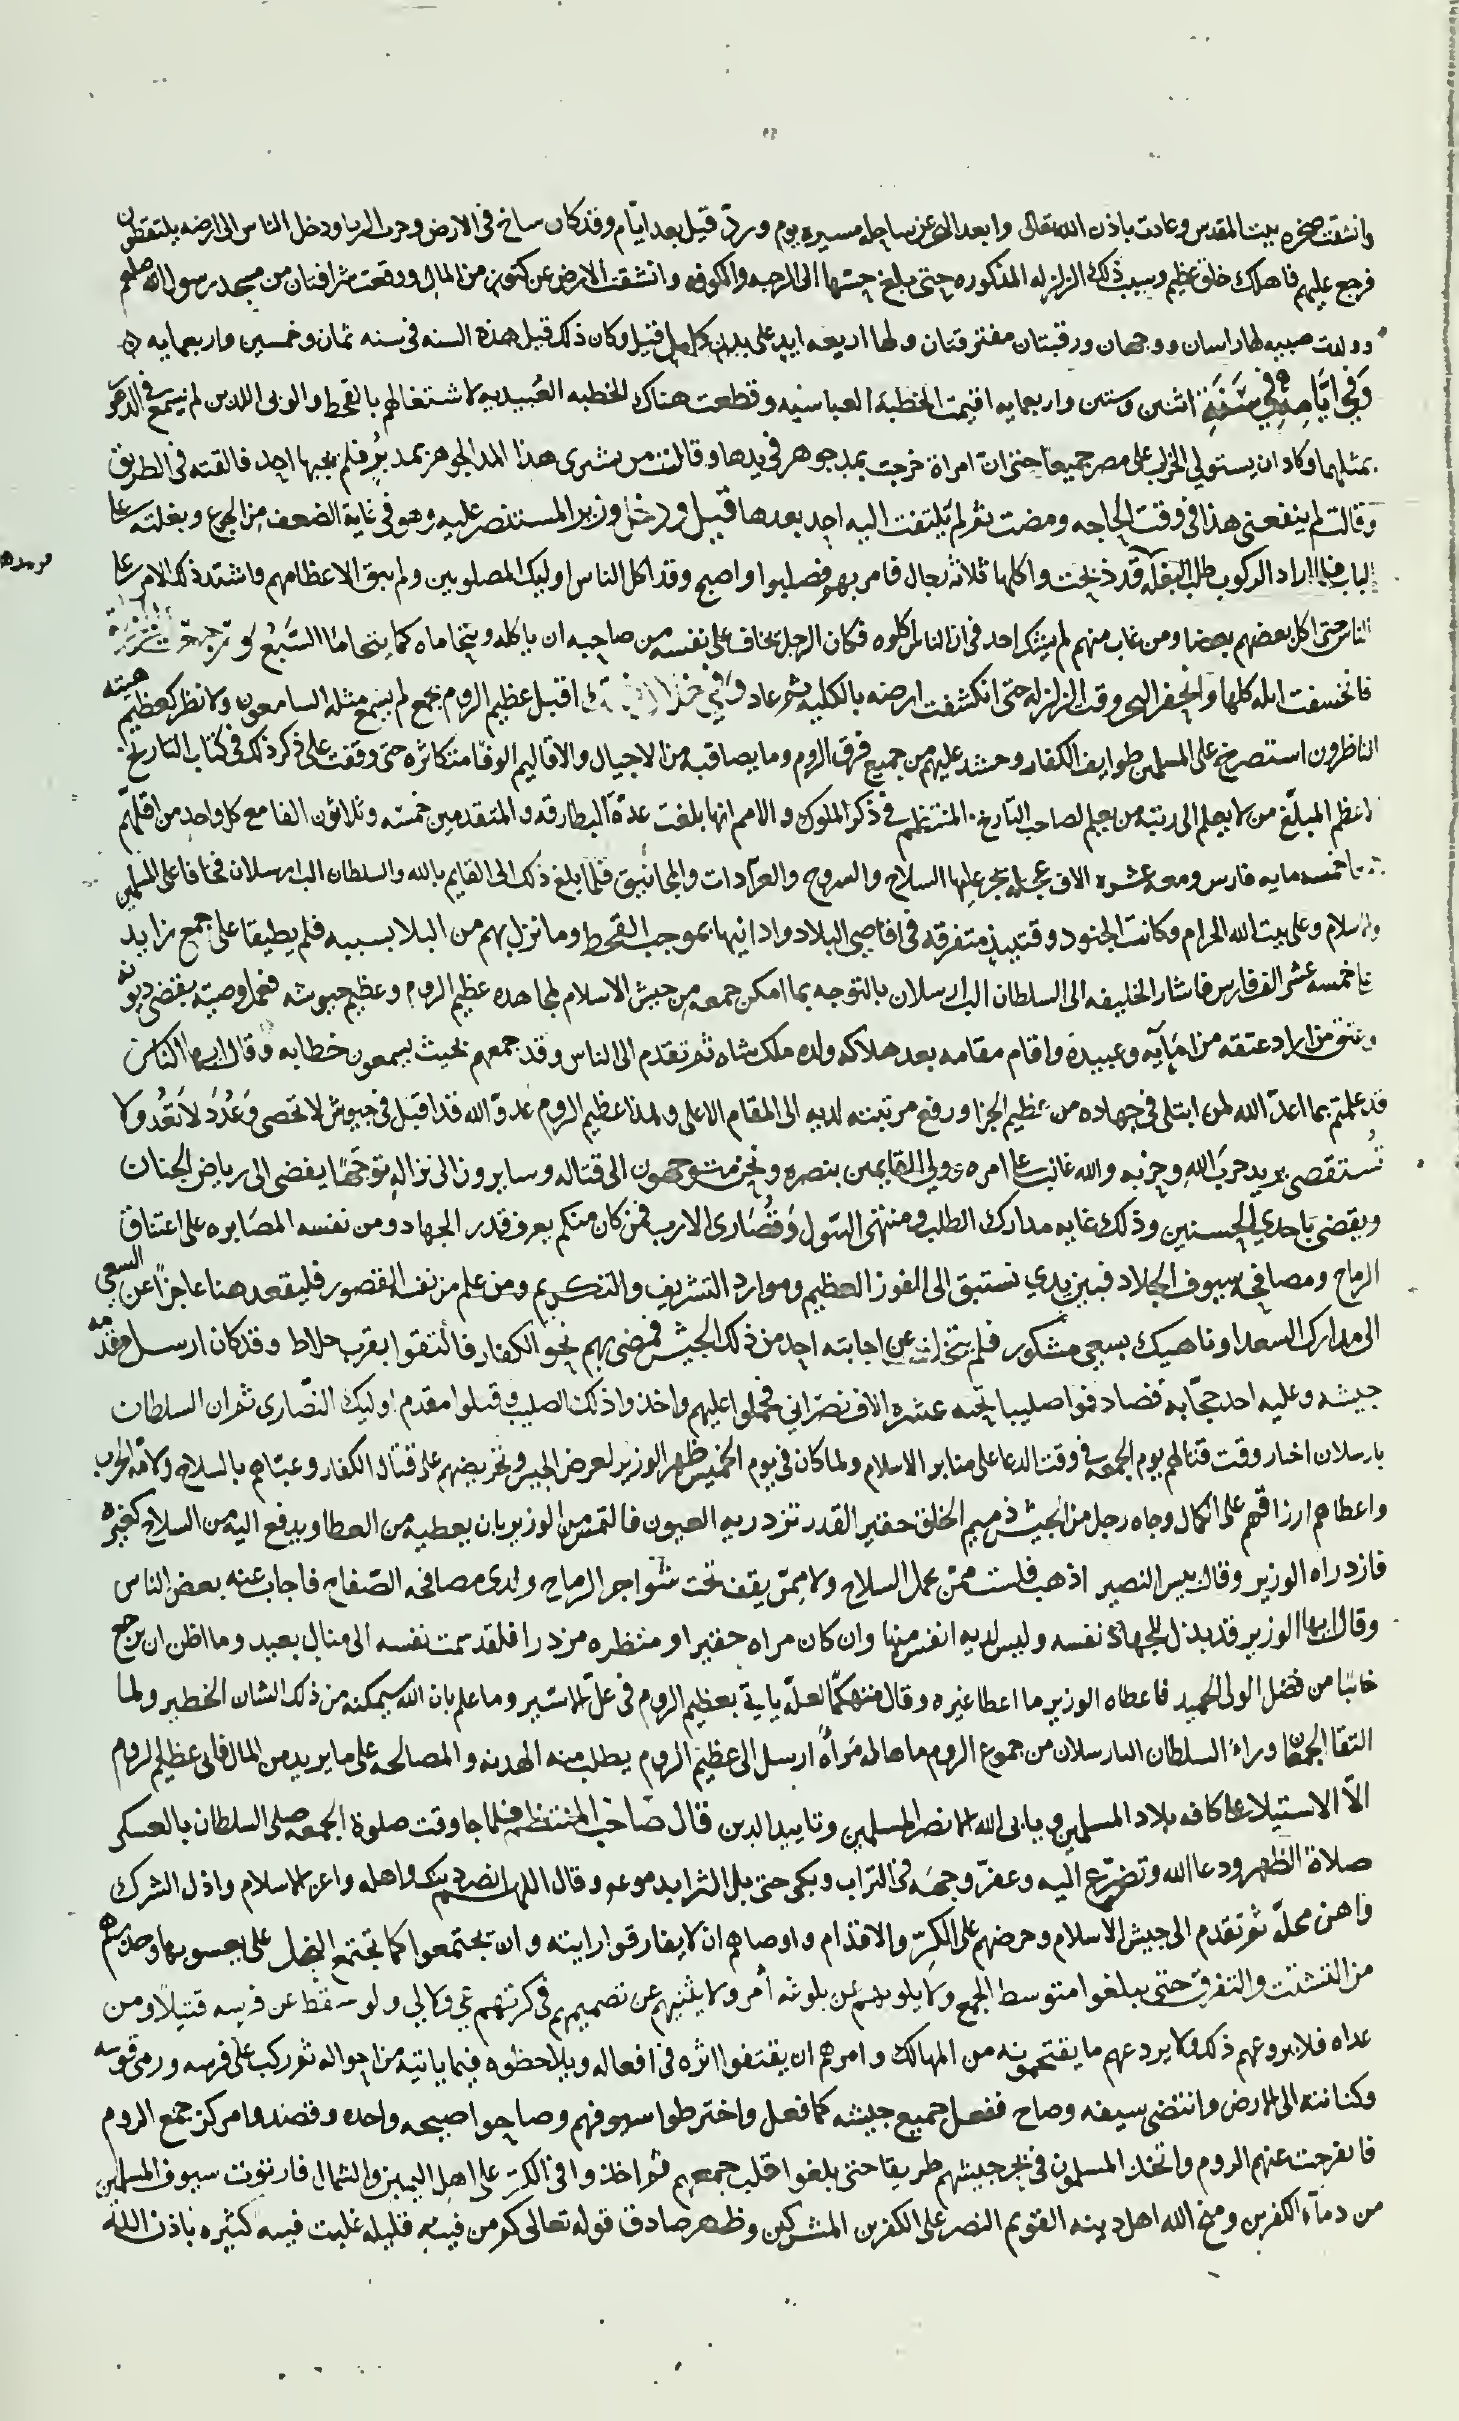 وانشقت صخره بيت المقدس وعادت باذن الله تعالى وابعد البحر عن ساحله مسيره يوم وردّ قيل بعد ايّام وقد كان ساخ في الارض ودخل الناس الى ارضه يلتقطون
فرجع عليهم فاهلك خلق عظيم وبسبب ذلك الزلزله المذكوره حتى بلغ حسّها الى الرحبه والكوفه وانشقت الارض عن كنوز من المال ووقعت شرافتان من مسجد رسول الله صلعم
وولدت صبيه لها راسان ووجهان ورقبتان مفترقتان ولها اربعه ايد على بدن كامل قيل وكان ذلك قبل هذه السنه في سنه ثمان وخمسين واربعمايه
وفي ايّامه في سنة اثنين وستين واربعمايه اقيمت الخطبة العباسيه وقطعت هناك الخطبه العُبيديه لاشتغالهم بالقحط والوبى اللذين لم يسمع في الدهور
بمثلهما وكاد ان يستولي الخراب على مصر جميعا حتى انّ امراة خرجت بمد جوهر في يدها وقالت من يشرى هذا المد الجوهر بمد بُر فلم يجبها احد فالقته في الطريق
وقالت لم ينفعني هذا في وقت الحاجه ومضت ثم لم يلتفت اليه احد بعدها قيل ودخل وزير المستنصر عليه وهو في غاية الضعف من الجوع وبغلته على
الباب فلما اراد الركوب طلب البغله قد ذبحت واكلها ثلاثه رجال فامر بهم فصلبوا واصبح وقد اكل الناس اوليك المصلوبين ولم يبق الا عظامهم واشتد ذلك الامر على
الناس حتى اكل بعضهم بعضا ومن غاب منهم لم يشك احد في ان الناس اكلوه فكان الرجل يخاف على نفسه من صاحبه ان ياكله ويتحاماه كما يتحاما السَّبُع
فانخسفت ايله كلها وانجفر البحر وقت الزلزله حتى انكشفت ارضه بالكليه ثم عاد وفي اقبل عظيم الروم بجمع لم يسمع مثله السامعون ولا نظر كعظيم هيبته
الناظرون استصرخ على المسلمين طوايف الكفار وحشد عليهم من جميع فرق الروم وما يصاقبه من الاجيال والاقاليم الوفا متكاثره حتى وقفت على ذكر ذلك في كتاب التاريخ
المنتظم في ذكر الملوك والامم انها بلغت عدّة البطارقه والمتقدمين خمسه وثلاثون الفا مع كل واحد من اقلهم
خمسمايه فارس ومعه عشره الاف عجله يجر عليها السلاح والسروج والعرّادات والمجانيق فلما بلغ ذلك الى القايم بالله والسلطان الب ارسلان فخافا على المسلمين
والاسلام وعلى بيت الله الحرام وكانت الجنود وقتيذ متفرقه في اقاصي البلاد وادانيها بموجب القحط وما نزل بهم من البلا بسببه فلم يطيقا على جمع زايد
خمسه عشر الف فارس فاشار الخليفه الى السلطان الب ارسلان بالتوجه بما امكن جمعه من جيش الاسلام لمجاهده عظيم الروم وعظيم جيوشه فعمل وصيته بقضى ديونه
وعتق من اراد عتقه من امآيه وعبيده واقام مقامه بعد هلاكه ولده ملك شاه ثم تقدم الى الناس وقد جمعهم بحيث يسمعون خطابه وقال ايها الناس
قد علمتم بما اعدّ الله لمن ابتلى في جهاده من عظيم الجزا ورفع مرتبته لديه الى المقام الاعلى ولهذا عظيم الروم عدوّ الله قد اقبل في جيوش لا تحصى وعُدَد لا تُعَد ولا
تُستقصى يريد حرب الله وحزبه والله غالب على امره وولي القايمين بنصره ونحن متوجهون الى قتاله وسايرون الى نزاله توجّهًا يفضى الى رياض الجنان
ويقضى باحدي الحسنيين وذلك غايه مدارك الطلب ومنتهى السّول وقُصَارى الارب فمن كان منكم يعرف قدر الجهاد ومن نفسه المصَابره على اعتناق
الرماح ومصافحه سيوف الجلاد فبين يدي نستبق الى الفوز العظيم وموارد التشريف والتكريم ومن علم من نفسه القصور فليقعد هنا عاجزًا عن السعي
الى مدارك السعدا وناهيك بسعي مشكور فلم يتخلف عن اجابته احد من ذلك الجيش فمضى بهم نحو الكفار فالتقوا بقرب خلاط وقد كان ارسل مقدّمه
جيشه وعليه احد حجّابه فصادفوا صليبا تحته عشره الاف نصراني فحملوا عليهم واخذوا ذلك الصليب وقتلوا مقدم اوليك النصّارى ثم ان السلطان
بارسلان اختار وقت قتالهم يوم الجمعه في وقت الدعا على منابر الاسلام ولما كان في يوم الخميس ظهر الوزير لعرض الجيش وتحريضهم على قتال الكفار وعبّاهم بالسلاح ولامة الحرب
واعطاهم ارزاقهم على الكمال وجاه رجل من الجيش ذميم الخلق حقير القدر تزدريه العيون فالتمس من الوزير بان يعطيه من العطا ويدفع اليه من السلاح كغيره
فازدراه الوزير وقال بيس النصير اذهب فلست ممّن يحمل السلاح ولا ممّن يقف تحت شواجر الرماح ولدى مصافحه الصّفاح فاجاب عنه بعض الناس
وقال ايها الوزير قد بذل للجهاد نفسه وليس لديه انفس منها وان كان مراه حقيرا ومنظره مزدرا فلقد سمت نفسه الى منال بعيد وما اظن ان يرجع
خائبًا من فضل الولى الحميد فاعطاه الوزير ما اعطا غيره وقال متهكّما لعلّه ياتي بعظيم الروم في غلّ الاسير وما علم بان الله سيمكنه من ذلك الشان الخطير ولما
التقا الجمعان وراى السلطان البارسلان من جموع الروم ما هاله مَرآه ارسل الى عظيم الروم يطلب منه الهدنه والمصالحه على ما يريد من المال فابى عظيم الروم
الّا الاستيلا على كافه بلاد المسلمين ويابى الله الا نصر المسلمين وتاييد الدين قال صَاحب المنتظم فلما جا وقت صلوة الجمعه صلى السلطان بالعسكر
صلاة الظهر ودعا الله وتضرّع اليه وعفرّ وجهَه في التراب وبكى حتى بل الثرا بدموعه وقال اللهم انصر دينك واهله واعز الاسلام واذل الشرك
واهن محلّه ثم تقدم الى جيش الاسلام وحرضهم على الكرّ والاقدام واوصاهم ان لا يفارقوا رايته وان يجتمعوا كما تجتمع النحل على يعسوبها وحذرهم
من التشتت والتفرق حتى يبلغوا متوسط الجمع ولا يلويهم عن بلوغه أمر ولا يثنيهم عن تصميمهم في كرتهم ولو سقط عن فرسه قتيلا ومن
عداه فلا يروعهم ذلك ولا يردعهم ما يقتحمونه من المهالك وامرهم ان يقتفوا اثره في افعاله ويلاحظوه فيما ياتيه من احواله ثم ركب على فرسه ورمى قوسه
وكنانته الى الارض وانتضى سيفه وصاح ففعل جميع جيشه كما فعل واخترطوا سيوفهم وصاحوا صيحه واحده وقصدوا مركز جمع الروم
فانفرجت عنهم الروم واتخذ المسلمون في بحر جيشهم طريقا حتى بلغوا قلب جمعهم ثم اخذوا في الكرّ على اهل اليمين والشمال فارتوت سيوف المسلمين
من دمآء الكفرين ومنح الله اهل دينه القويم النصر على الكفرين المشركين وظهر صادق قوله تعالى كم من فيه قليله غلبت فيه كثيره باذن الله